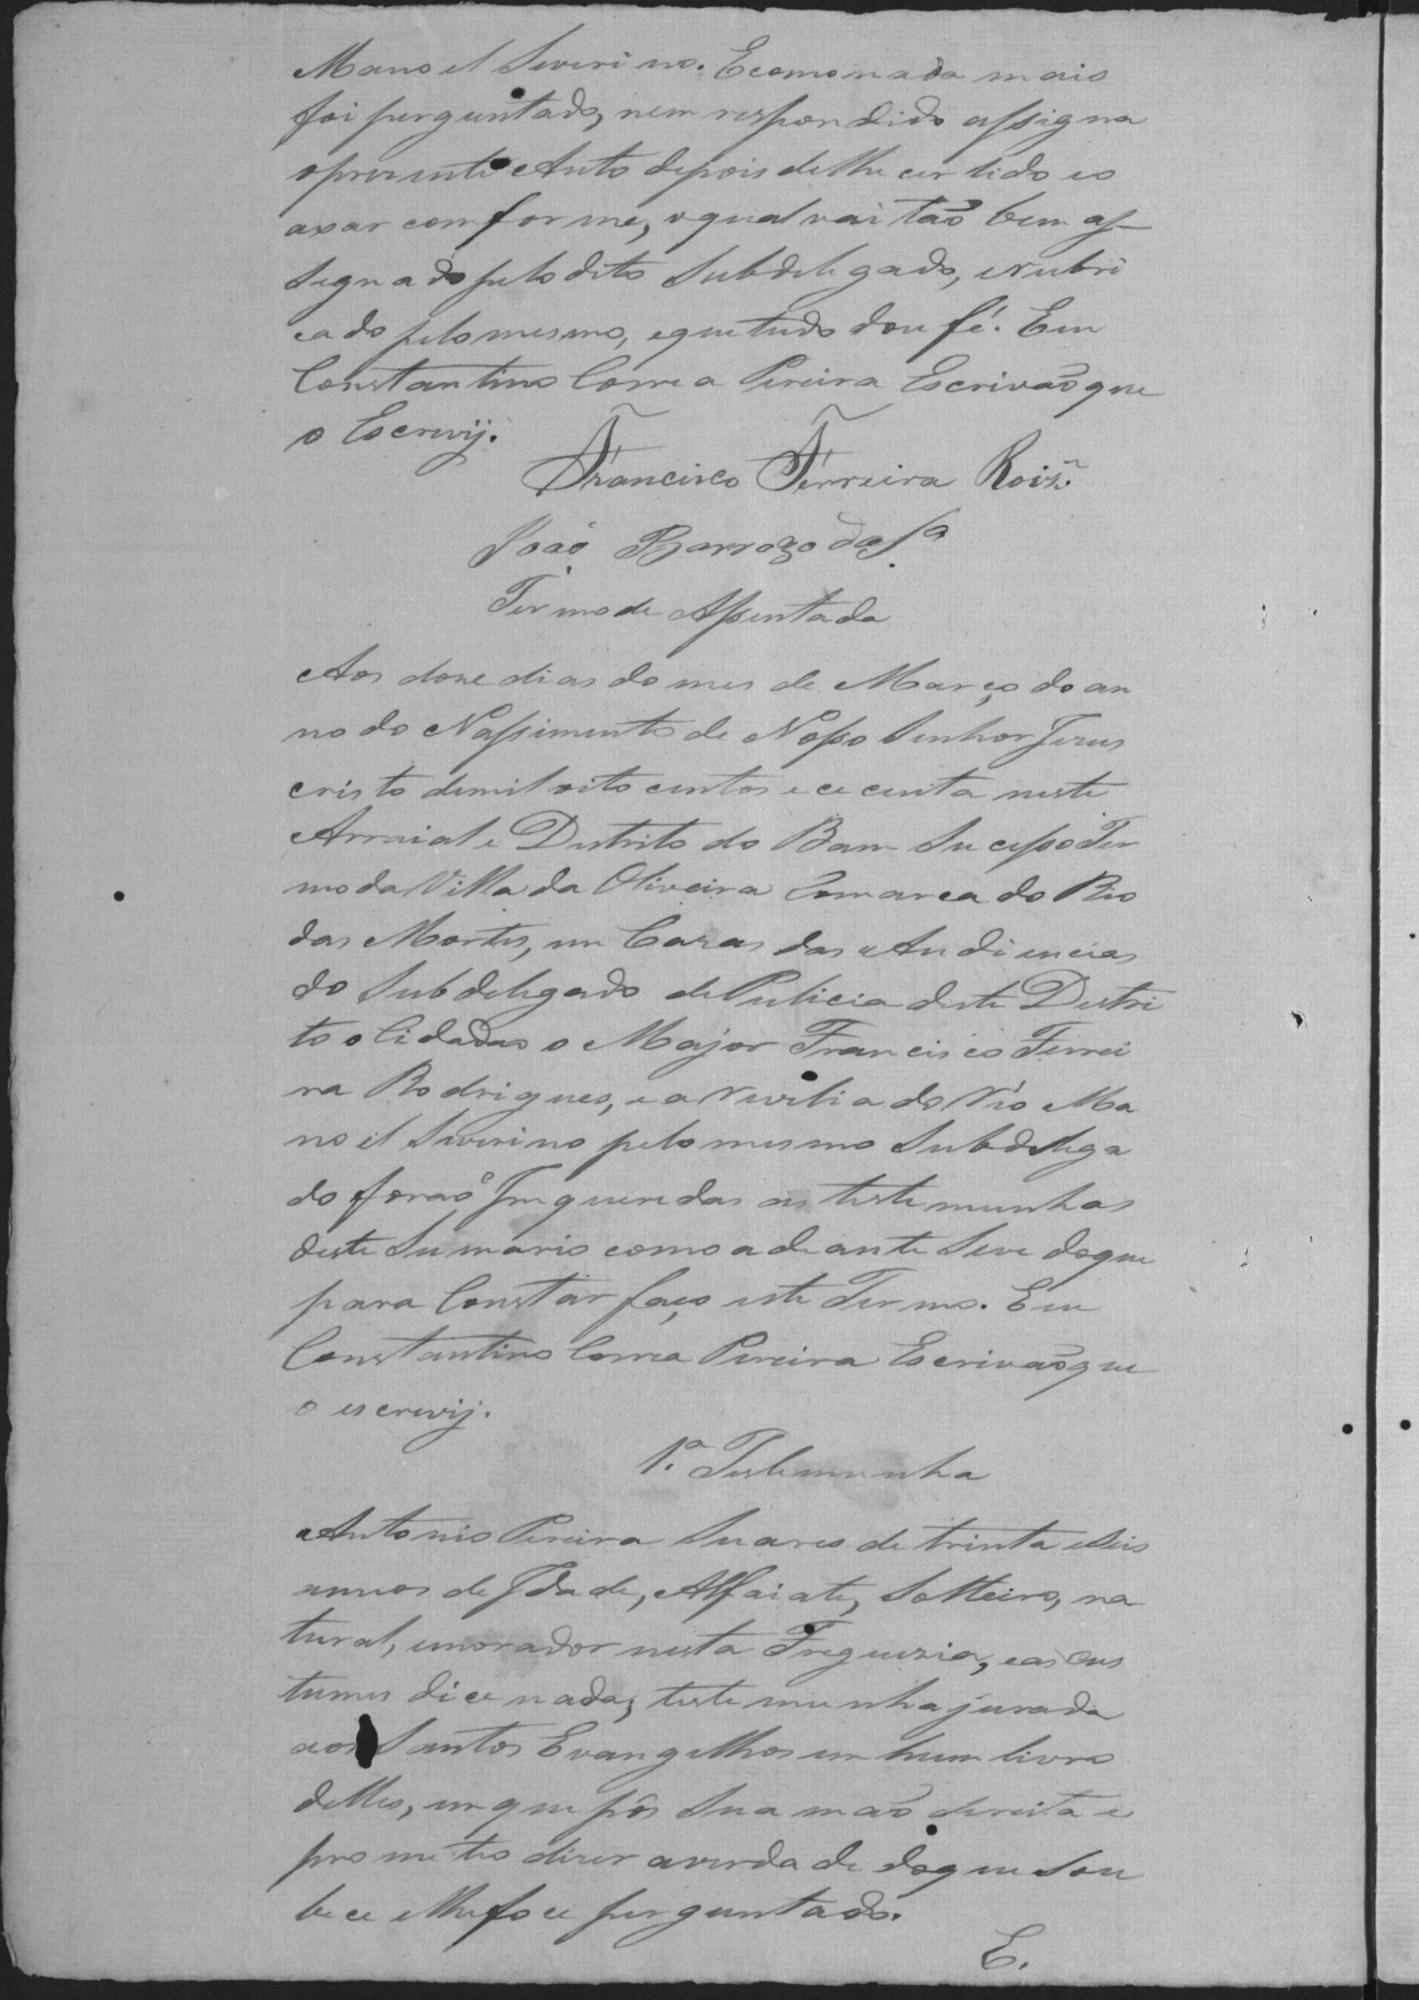 Manoel Severino. E como nada mais
foi perguntado, nem respondido assigna
o prezente Auto depois delhe cer lido eo
axar comforme, o qual vai tão bem as-
segnado pelo dito Subdelegado, e rubri
cado pelo mesmo, eque tudo dou fé. Eu
Constantino Correa Pereira Escrivão que
o Escrevij.
Francisco Ferreira Roiz.
João Barrozo da Sa.
Termo de Assentada
Aos doze dias do mes de Março do an
no do Nassimento de Nosso Senhor Jezus
cristo de mil oito centos e cecenta neste
Arraial e Destrito do Bam Sucesso Ter
mo da Villa da Oliveira Comarca do Rio
das Mortes, em Cazas das Audiencias
do Subdelegado de Pulicia deste Destri
to o Cidadao o Major Francisco Ferrei
ra Rodrigues, e a revelia do Reo Ma
noel Severino pelo mesmo Subdelega
do forão Inqueredas as testemunhas
deste Sumario como adeante Seve do que
para Constar faço este Termo. Eu
Constantino Correa Pereira Escrivão que
o escrevij.
1a. Testemunha
Antonio Pereira Suares de trinta e Seis
annos de Idade, Alfaiate, Solteiro, na
tural, e morador nesta Freguezia, e aos cus
tumes dice nada, testemunha jurada
aos Santos Evangelhos em hum livro
delles, em que pôs Sua mão dereita e
prometeo dizer averdade do que Sou
bece e lhe foce perguntado.
E.